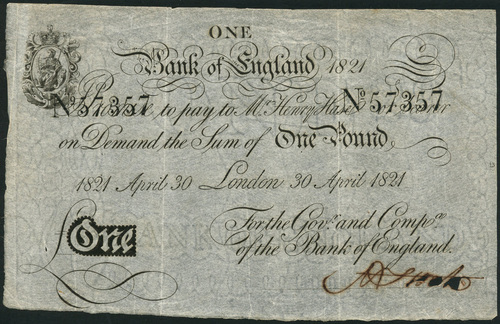 ONE
Bank of England 1821
I Promise to pay to Mr. Henry Hase or Bearer
No 57357 No 57357
on Demand the Sum of One Pound
1821 April 30 London 30 April 1821
For the Govr. and Compa.
of the Bank of England.
One